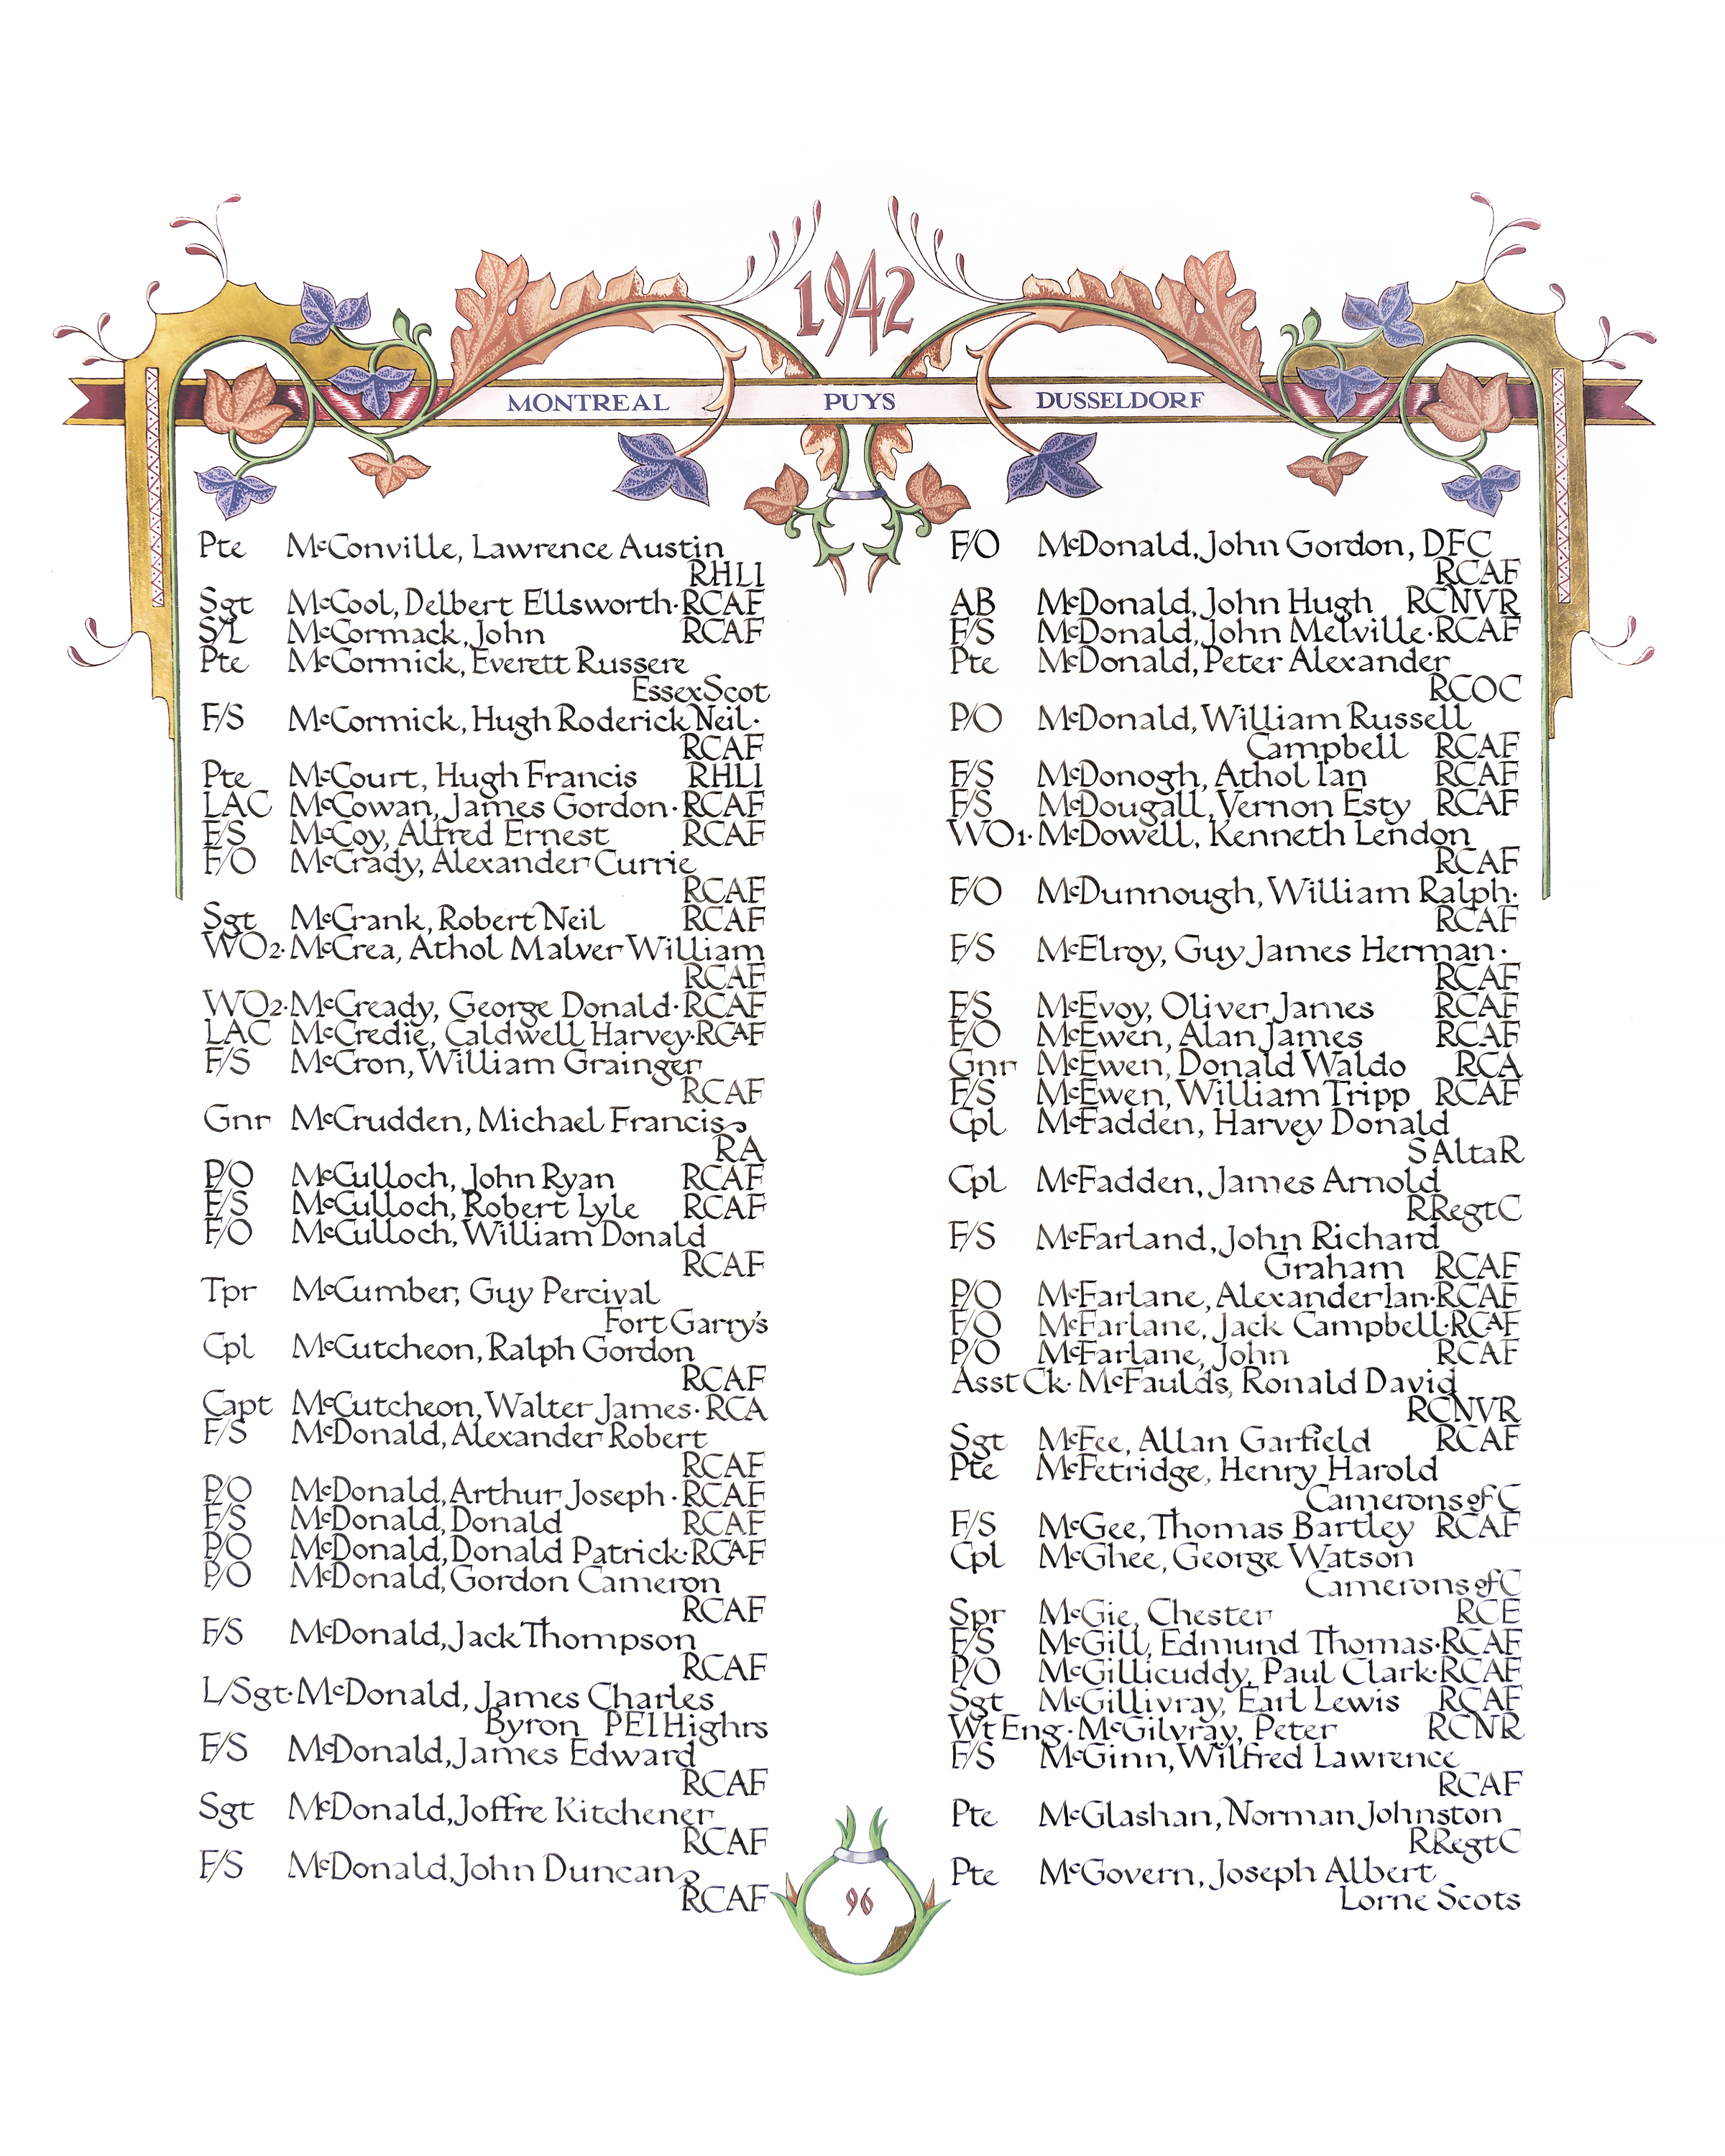 1942
MONTREAL PUYS DUSSELDORF
Pte McConville, Lawrence Austin
RHLI
Sgt McCool, Delbert Ellsworth·RCAF
S/L McCormack, John RCAF
Pte McCormick, Everett Russere
EssexScot
F/S McCormick, Hugh Roderick Neil·
RCAF
Pte McCourt, Hugh Francis RHLI
LAC McCowan, James Gordon·RCAF
F/S McCoy, Alfred Ernest RCAF
F/O McCrady, Alexander Currie
RCAF
Sgt McCrank, Robert Neil RCAF
WO2·McCrea, Athol Malver William
RCAF
WO2·McCready, George Donald·RCAF
LAC McCredie, Caldwell Harvey·RCAF
F/S McCron, William Grainger
RCAF
Gnr McCrudden, Michael Francis
RA
P/O McCulloch, John Ryan RCAF
F/S McCulloch, Robert Lyle RCAF
F/O McCulloch, William Donald
RCAF
Tpr McCumber, Guy Percival
Fort Garry's
Cpl McCutcheon, Ralph Gordon
RCAF
Capt McCutcheon, Walter James·RCA
F/S McDonald, Alexander Robert
RCAF
P/O McDonald, Arthur Joseph·RCAF
F/S McDonald, Donald RCAF
P/O McDonald, Donald Patrick·RCAF
P/O McDonald, Gordon Cameron
RCAF
F/S McDonald, Jack Thompson
RCAF
L/Sgt·McDonald, James Charles
Byron PEIHighrs
F/S McDonald, James Edward
RCAF
Sgt McDonald, Joffre Kitchener
RCAF
F/S McDonald, John Duncan
RCAF
F/O McDonald, John Gordon, DFC
RCAF
AB McDonald, John Hugh RCNVR
F/S McDonald, John Melville·RCAF
Pte McDonald, Peter Alexander
RCOC
P/O McDonald, William Russell
Campbell RCAF
F/S McDonogh, Athol Ian RCAF
F/S McDougall, Vernon Esty RCAF
WO1·McDowell, Kenneth Lendon
RCAF
F/O McDunnough, William Ralph·
RCAF
F/S McElroy, Guy James Herman·
RCAF
F/S McEvoy, Oliver James RCAF
F/O McEwen, Alan James RCAF
Gnr McEwen, Donald Waldo RCA
F/S McEwen, William Tripp RCAF
Cpl McFadden, Harvey Donald
SAltaR
Cpl McFadden, James Arnold
RRegtC
F/S McFarland, John Richard
Graham RCAF
P/O McFarlane, Alexander Ian·RCAF
F/O McFarlane, Jack Campbell·RCAF
P/O McFarlane, John RCAF
Asst Ck·McFaulds, Ronald David
RCNVR
Sgt McFee, Allan Garfield RCAF
Pte McFetridge, Henry Harold
Camerons of C
F/S McGee, Thomas Bartley RCAF
Cpl McGhee, George Watson
Camerons of C
Spr McGie, Chester RCE
F/S McGill, Edmund Thomas·RCAF
P/O McGillicuddy, Paul Clark·RCAF
Sgt McGillivray, Earl Lewis RCAF
Wt Eng·McGilvray, Peter RCNR
F/S McGinn, Wilfred Lawrence
RCAF
Pte McGlashan, Norman Johnston
RRegtC
Pte McGovern, Joseph Albert
Lorne Scots
96